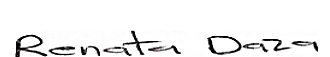 Renata Daza